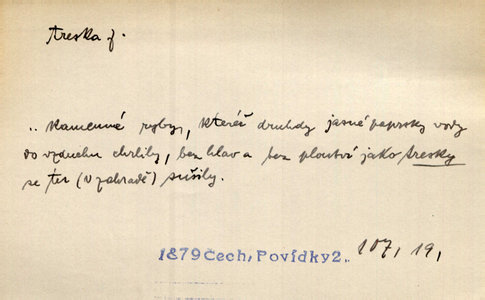 treska f.
„ kamenné ryby, kteréž druhdy jasné paprsky vody
do vzduchu chrlily, bez hlav a bez ploutví jako tresky
se tu (v zahradě) sušily.
1879 Čech, Povídky 2. 107, 19,